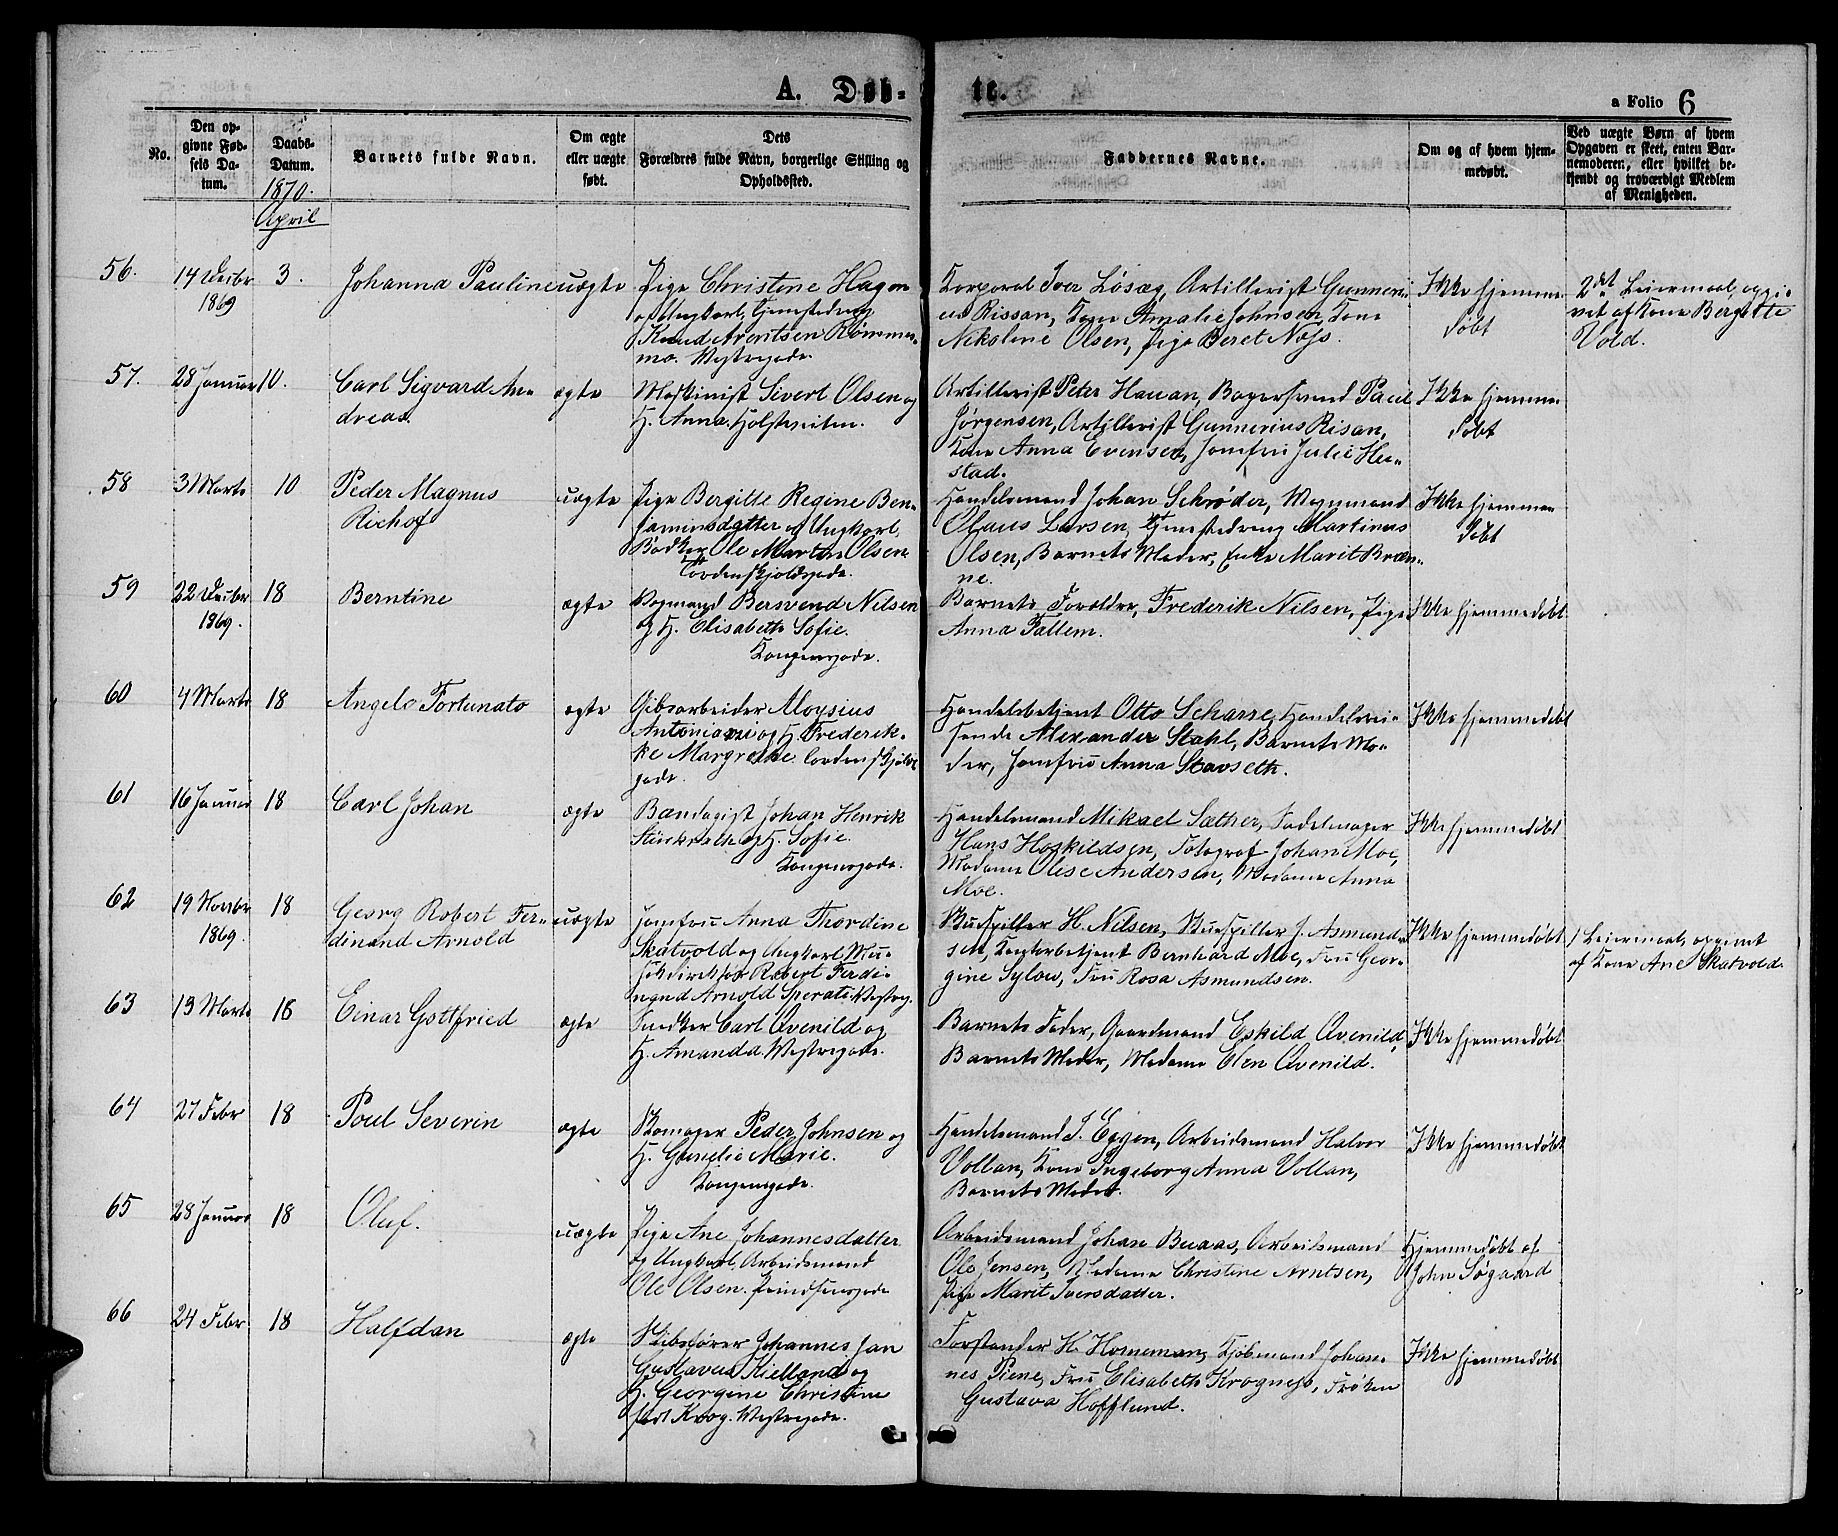 A. Døbte.
a Folio 6
No.
Den opgivne Fødsels Datum.
Daabs-Datum.
Barnets fulde Navn.
Om ægte eller uægte født.
Dets Forældres fulde Navn, borgerlige Stilling og Opholdssted.
Faddernes Navne.
Om og af hvem hjemmedøbt.
Ved uægte Børn af hvem Opgaven er skeet, enten Barnemoderen, eller hvilket bekjendt og troværdigt Medlem af Menigheden.
1870.
April
56.
14 Decbr
1869
3.
Johanna Pauline
uægte
Pige Christine Hagen
og Ungkarl, Tjenestedreng
Knud Arentsen Rømme-
mo. Vestregade.
Korporal Iver Løsæg, Artillerist Gunneri-
us Rissan, Kone Amalie Johnsen, Kone
Nikoline Olsen, Pige Beret Næss.
Ikke hjemme
døbt
2det Leiermaal, opgi-
vet af Kone Bergitte
Vold.
57.
28 Januar
10.
Carl Sigvard An-
dreas.
ægte
Maskinist Sivert Olsen og
H. Anna. Holstveiten.
Artillerist Peter Hauan, Bagersvend Paul
Jørgensen, Artillerist Gunnerius Risan,
Kone Anna Evensen, Jomfru Julie Hei-
stad.
Ikke hjemme
døbt
58
3 Marts
10
Peder Magnus
Richof
uægte
Pige Bergitte Regine Ben-
jaminsdatter og Ungkarl,
Bødker Ole Martin Olsen
Tordenskjoldsgade.
Handelsmand Johan Schrøder, Vognmand
Olaus Larsen, Tjenestedreng Martinus
Olsen, Barnets Moder, Enke Marit Bræn-
ne.
Ikke hjemme
døbt
59
22 Decbr
1869.
18
Berntine
ægte
Vognmand Bersvend Nilsen
og H. Elisabeth Sofie.
Kongensgade.
Barnets Forældre, Frederik Nilsen, Pige
Anna Fallem.
Ikke hjemmedøbt
60
4 Marts
18
Angelo Fortunato
ægte
Gibsarbeider Aloysius
Antoniovi og H. Frederik-
ke Margrethe. Tordenskjolds
gade.
Handelsbetjent Otto Scharre, Handelsrei-
sende Alexander Stahl, Barnets Mo-
der, Jomfru Anna Stavseth.
Ikke hjemmedøbt
61
16 Januar
18
Carl Johan
ægte
Bandagist Johan Henrik
og H. Sofie.
Kongensgade.
Handelsmand Mikael Sæther, Sadelmager
Hans Hoskildsen, Fotograf Johan Moe,
Madame Olise Andersen, Madame Anna
Moe.
Ikke hjemmedøbt
62
19 Novbr
1869.
18
Georg Robert Fer-
dinand Arnold
uægte
Jomfru Anna Thordine
Skatvold og Ungkarl Mu-
sikdirektør Robert Ferdi-
nand Arnold Sperati. Vestreg.
Skuespiller H. Nilsen, Skuespiller J. Asmund-
sen, Kontorbetjent Bernhard Moe, Fru Geor-
gine Sylow, Fru Rosa Asmundsen.
Ikke hjemmedøbt
1 Leiermaal, opgivet
af Kone Ane Skatvold.
63
13 Marts
18
Einar Gottfried
ægte
Snedker Carl Qvenild og
H. Amanda. Vestregade.
Barnets Fader, Gaardmand Eskild Qvenild,
Barnets Moder, Madame Elen Qvenild.
Ikke hjemmedøbt
64
27 Febr
18
Poul Severin
ægte
Skomager Peder Johnsen og
H. Gunelie Marie.
Kongensgade.
Handelsmand J. Eggen, Arbeidsmand Halvor
Vollan, Kone Ingeborg Anna Vollan,
Barnets Moder.
Ikke hjemmedøbt
65
28 Januar
18
Oluf.
uægte
Pige Ane Johannesdatter
og Ungkarl, Arbeidsmand
Ole Olsen. Prindsensgade
Arbeidsmand Johan Buaas, Arbeidsmand
Ole Jensen, Madame Christine Arntsen,
Pige Marit Iversdatter.
Hjemmedøbt af
John Søgaard
66
24 Febr
18
Halfdan
ægte
Skibsfører Johannes Jan
Gustavus Kielland og
H. Georgine Christine
født Krog. Vestregade.
Forstander H. Horneman, Kjøbmand Johan-
nes Piene, Fru Elisabeth Krogness, Frøken
Gustava Hofflund.
Ikke hjemmedøbt